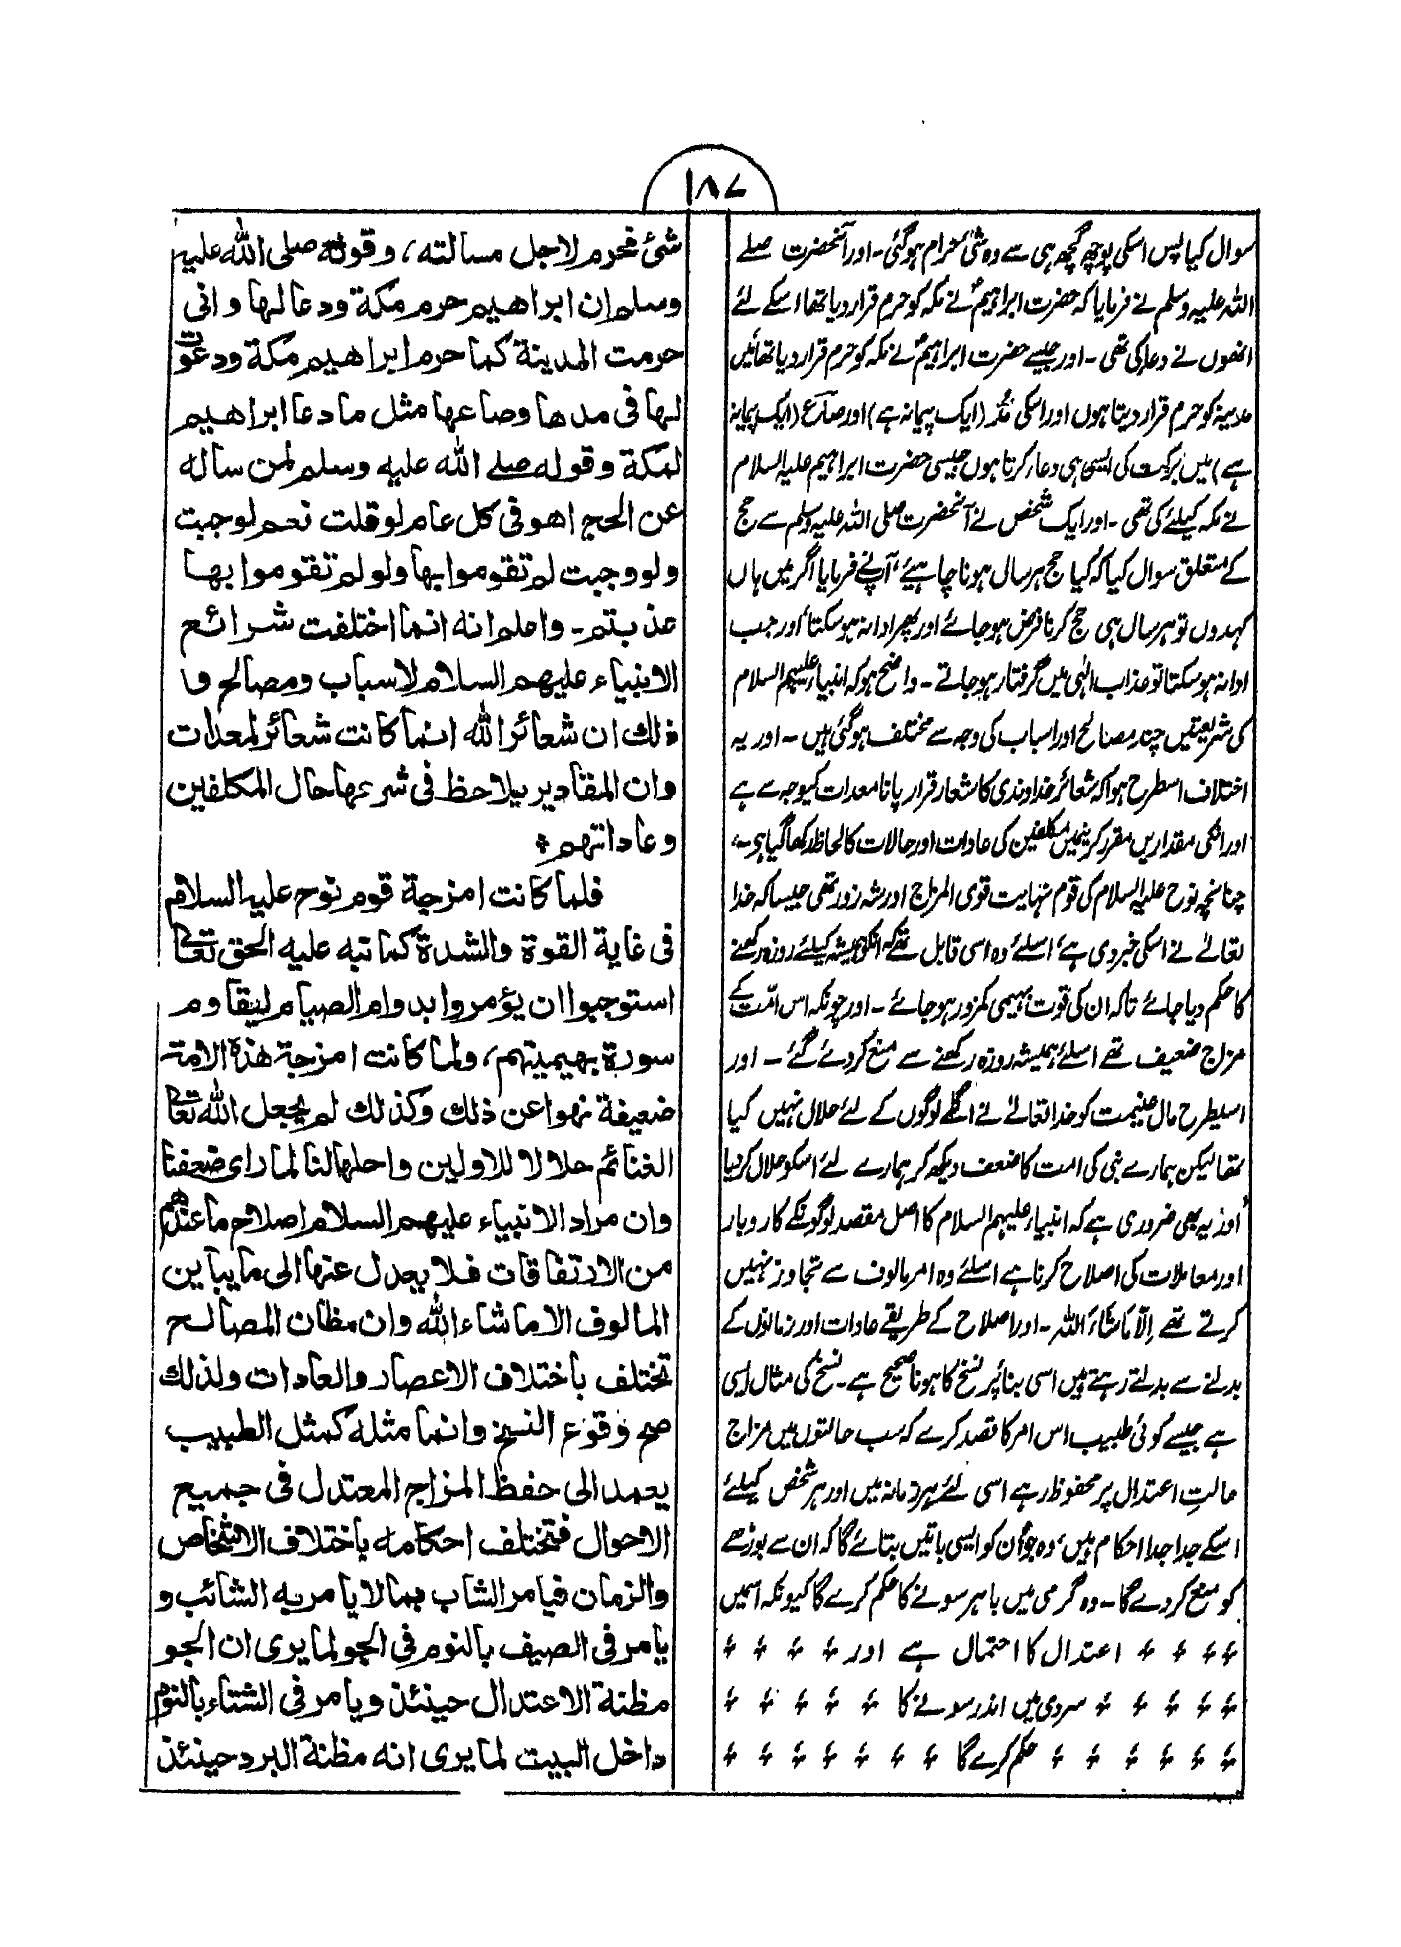 ۱۸۷
سوال کیا پس اسکی پوچھ گچھ ہی سے وہ شئ حرام ہوگئی۔ اور آنحضرت صلے
اللہ علیہ وسلم نے فرمایا کہ حضرت ابراہیمؑ نے مکہ کو حرم قرار دیا تھا اسکے لئے
انھوں نے دعا کی تھی۔ اور جیسے حضرت ابراہیمؑ نے مکہ کو حرم قرار دیا تھا میں
مدینہ کو حرم قرار دیتا ہوں اور اسکی مُد (ایک پیمانہ ہے) اور صاع (ایک پیمانہ
ہے) میں برکت کی ایسی ہی دعاء کرتا ہوں جیسی حضرت ابراہیم علیہ السلام
نے مکہ کیلئے کی تھی۔ اور ایک شخص نے آنحضرت صلی اللہ علیہ وسلم سے حج
کے متعلق سوال کیا کہ کیا حج ہر سال ہونا چاہیے، آپنے فرمایا اگر میں ہاں
کہدوں تو ہر سال ہی حج کرنا فرض ہو جائے اور پھر ادا نہ ہو سکتا، اور جب
ادا نہ ہو سکتا تو عذاب الٰہی میں گرفتار ہو جاتے۔ واضح ہو کہ انبیاء علیہم السلام
کی شریعتیں چند مصالح اور اسباب کی وجہ سے مختلف ہوگئی ہیں۔ اور یہ
اختلاف اسطرح ہوا کہ شعائر خداوندی کا شعار قرار پانا معدات کیوجہ سے ہے
اور انکی مقداریں مقرر کرنیمیں مکلفین کی عادات اور حالات کا لحاظ رکھا گیا ہی۔
چنانچہ نوح علیہ السلام کی قوم نہایت قوی المزاج اور شہ زور تھی جیسا کہ خدا
تعالےٰ نے اسکی خبر دی ہے، اسلئے وہ اسی قابل تھے کہ انکو ہمیشہ کیلئے روزہ رکھنے
کا حکم دیا جائے تاکہ ان کی قوت بہیمی کمزور ہو جائے۔ اور چونکہ اس امّت کے
مزاج ضعیف تھے اسلئے ہمیشہ روزہ رکھنے سے منع کر دئے گئے۔ اور
اسیطرح مال غنیمت کو خدا تعالےٰ نے اگلے لوگوں کے لئے حلال نہیں کیا
تھا لیکن ہمارے نبی کی امت کا ضعف دیکھ کر ہمارے لئے اسکو حلال کر دیا
اور یہ بھی ضروری ہے کہ انبیاء علیہم السلام کا اصل مقصد لوگونکے کاروبار
اور معاملات کی اصلاح کرنا ہے اسلئے وہ امر مالوف سے تجاوز نہیں
کرتے تھے اِلّا ماشاء اللہ۔ اور اصلاح کے طریقے عادات اور زمانوں کے
بدلنے سے بدلتے رہتے ہیں اسی بنا پر نسخ کا ہونا صحیح ہے۔ نسخ کی مثال ایسی
ہے جیسے کوئی طبیب اس امر کا قصد کرے کہ سب حالتوں میں مزاج
حالتِ اعتدال پر محفوظ رہے اسی لئے ہر زمانہ میں اور ہر شخص کیلئے
اسکے جدا جدا احکام ہیں، وہ جوان کو ایسی باتیں بتائے گا کہ ان سے بوڑھے
کو منع کر دے گا۔ وہ گرمی میں باہر سونے کا حکم کرے گا کیونکہ اسمیں
اعتدال کا احتمال ہے اور
سردی میں اندر سونے کا
حکم کرے گا
شئ فحرم لاجل مسالته، وقوله صلى الله عليه
وسلم ان ابراهيم حرم مكة ودعا لها وانی
حرمت المدينة كما حرم ابراهيم مكة ودعوت
لها فی مدها وصاعها مثل ما دعا ابراهيم
لمكة وقوله صلے الله عليه وسلم لمن ساله
عن الحج اهو فی كل عام لو قلت نعم لوجبت
ولو وجبت لم تقوموا بها ولو لم تقوموا بها
عذبتم۔ واعلم انه انما اختلفت شرائع
الانبياء عليهم السلام لاسباب ومصالح و
ذلك ان شعائر الله انما كانت شعائر لمعدات
وان المقادير يلاحظ فی شرعها حال المكلفين
وعاداتهم
فلما كانت امزجة قوم نوح عليه السلام
فی غاية القوة والشدة كما نبه عليه الحق تعالٰی
استوجبوا ان يؤمروا بدوام الصيام ليقاوم
سورة بهيميتهم، ولما كانت امزجة هذه الامة
ضعيفة نهوا عن ذلك وكذلك لم يجعل الله تعالٰی
الغنائم حلالا للاولين واحلها لنا لما رای ضعفنا
وان مراد الانبياء عليهم السلام اصلاح ما عندهم
من الارتفاقات فلا يعدل عنها الی ما يباين
المالوف الا ما شاء الله وان مظان المصالح
تختلف باختلاف الاعصار والعادات ولذلك
صح وقوع النسخ وانما مثله كمثل الطبيب
يعمد الی حفظ المزاج المعتدل فی جميع
الاحوال فتختلف احكامه باختلاف الاشخاص
والزمان فيامر الشاب بما لا يامر به الشائب و
يامر فی الصيف بالنوم فی الجو لما يری ان الجو
مظنة الاعتدال حينئذ ويامر فی الشتاء بالنوم
داخل البيت لما يری انه مظنة البرد حينئذ